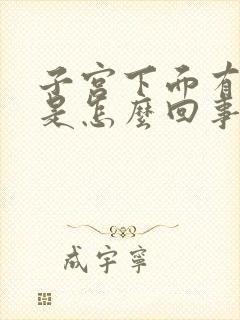 子宫下面有
是怎麼回事
成宇寧